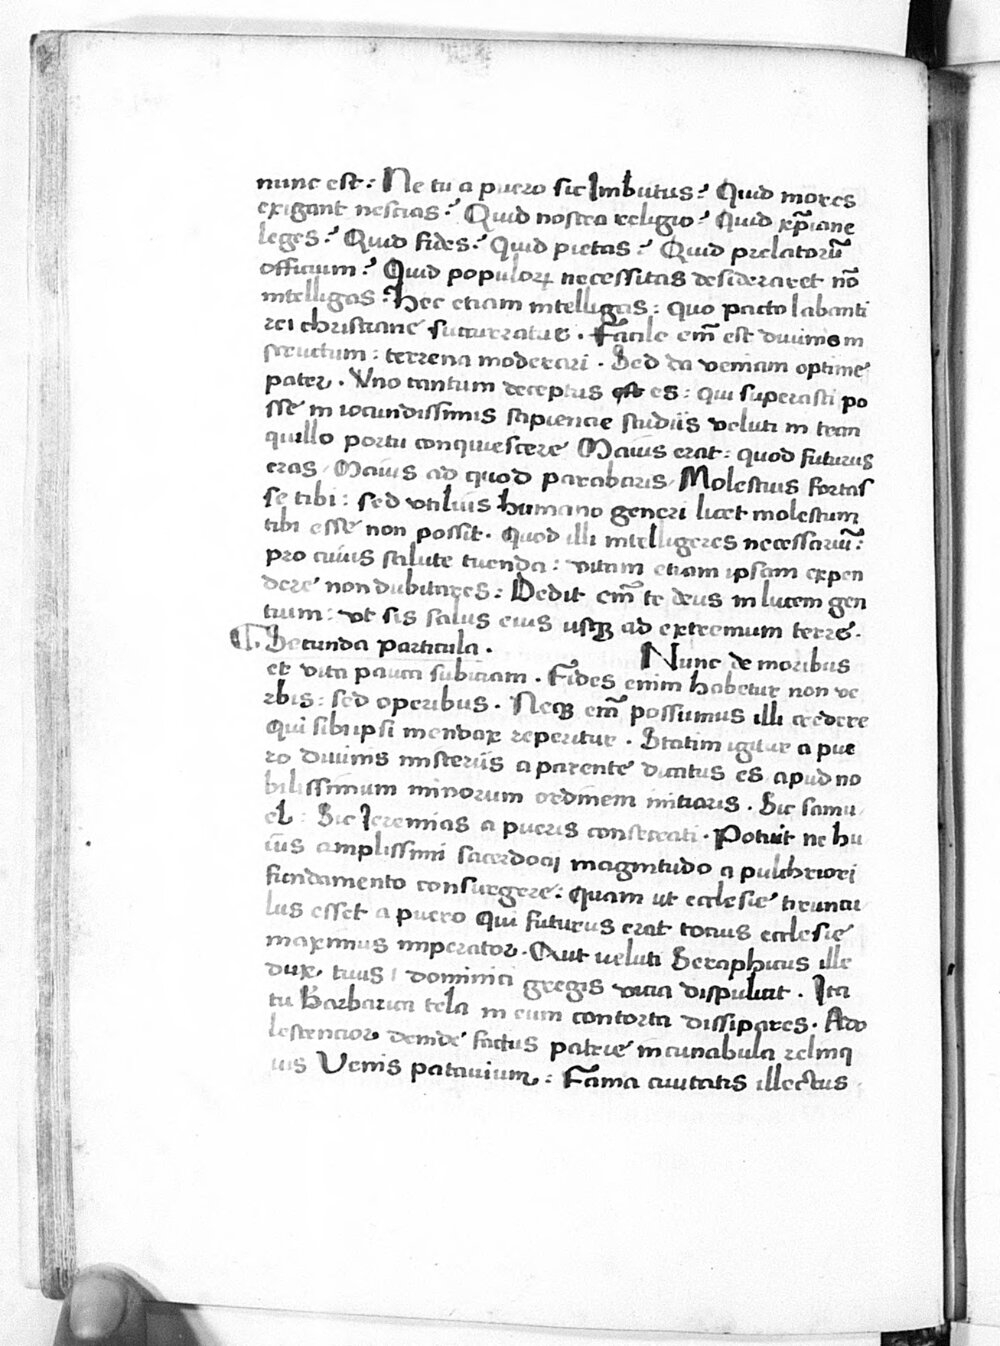 nunc est: Ne tu a puero sic Imbutus? Quid mores
exigant nescias? Quid nostra religio? Quid xp̃iane
leges? Quid fides? Quid pietas? Quid prelatorũ
officium? Quid populoꝝ necessitas desideraret nõ
intelligas? Hec etiam intelligas: quo pacto labanti
rei christiane succurratur. Facile em̃ est diuinis in
structum: terrena moderari. Sed da veniam optime
pater. Vno tantum deceptus est es: qui superasti po
sse in iocundissimis sapiencie studiis veluti in tran
quillo portu conquiescere Maius erat: quod futurus
eras, Maius ad quod parabaris, Molestius fortas
se tibi: sed vtilius humano generi licet molestum
tibi esse non possit. Quod illi intelligeres necessariũ:
pro cuius salute tuenda: vitam etiam ipsam expen
dere non dubitares: Dedit em̃ te deus in lucem gen
tium: vt sis salus eius usqꝫ ad extremum terre.
¶ Secunda particula. Nunc de moribus
et vita pauca subiciam. Fides enim habetur non ve
rbis: sed operibus. Neqꝫ em̃ possumus illi credere
Qui sibiipsi mendax reperitur. Statim igitur a pue
ro diuinis misteriis a parente dicatus es apud no
bilissimum minorum ordinem initiaris. Sic samu
el: Sic Ieremias a pueris consecrati. Potuit ne hu
ius amplissimi sacerdocij magnitudo a pulchriori
fundamento consurgere: Quam ut ecclesie tiruncu
lus esset a puero Qui futurus erat tocius ecclesie
maximus imperator. Aut veluti Seraphicus ille
dux, tuus, dominici gregis vicia dispulit. Ita
tu Barbarica tela in eum contorta dissipares. Ado
lescencior deinde factus patrie incunabula relinq
uis Venis patauium: Fama ciuitatis illectus